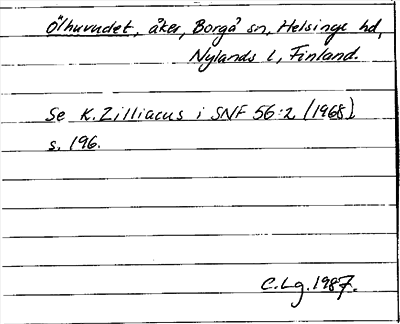 Ölhuvudet, åker, Borgå sn, Helsinge hd,
Nylands l, Finland.
Se K. Zilliacus i SNF 56:2 (1968)
s. 196.
C. Lg. 1987.